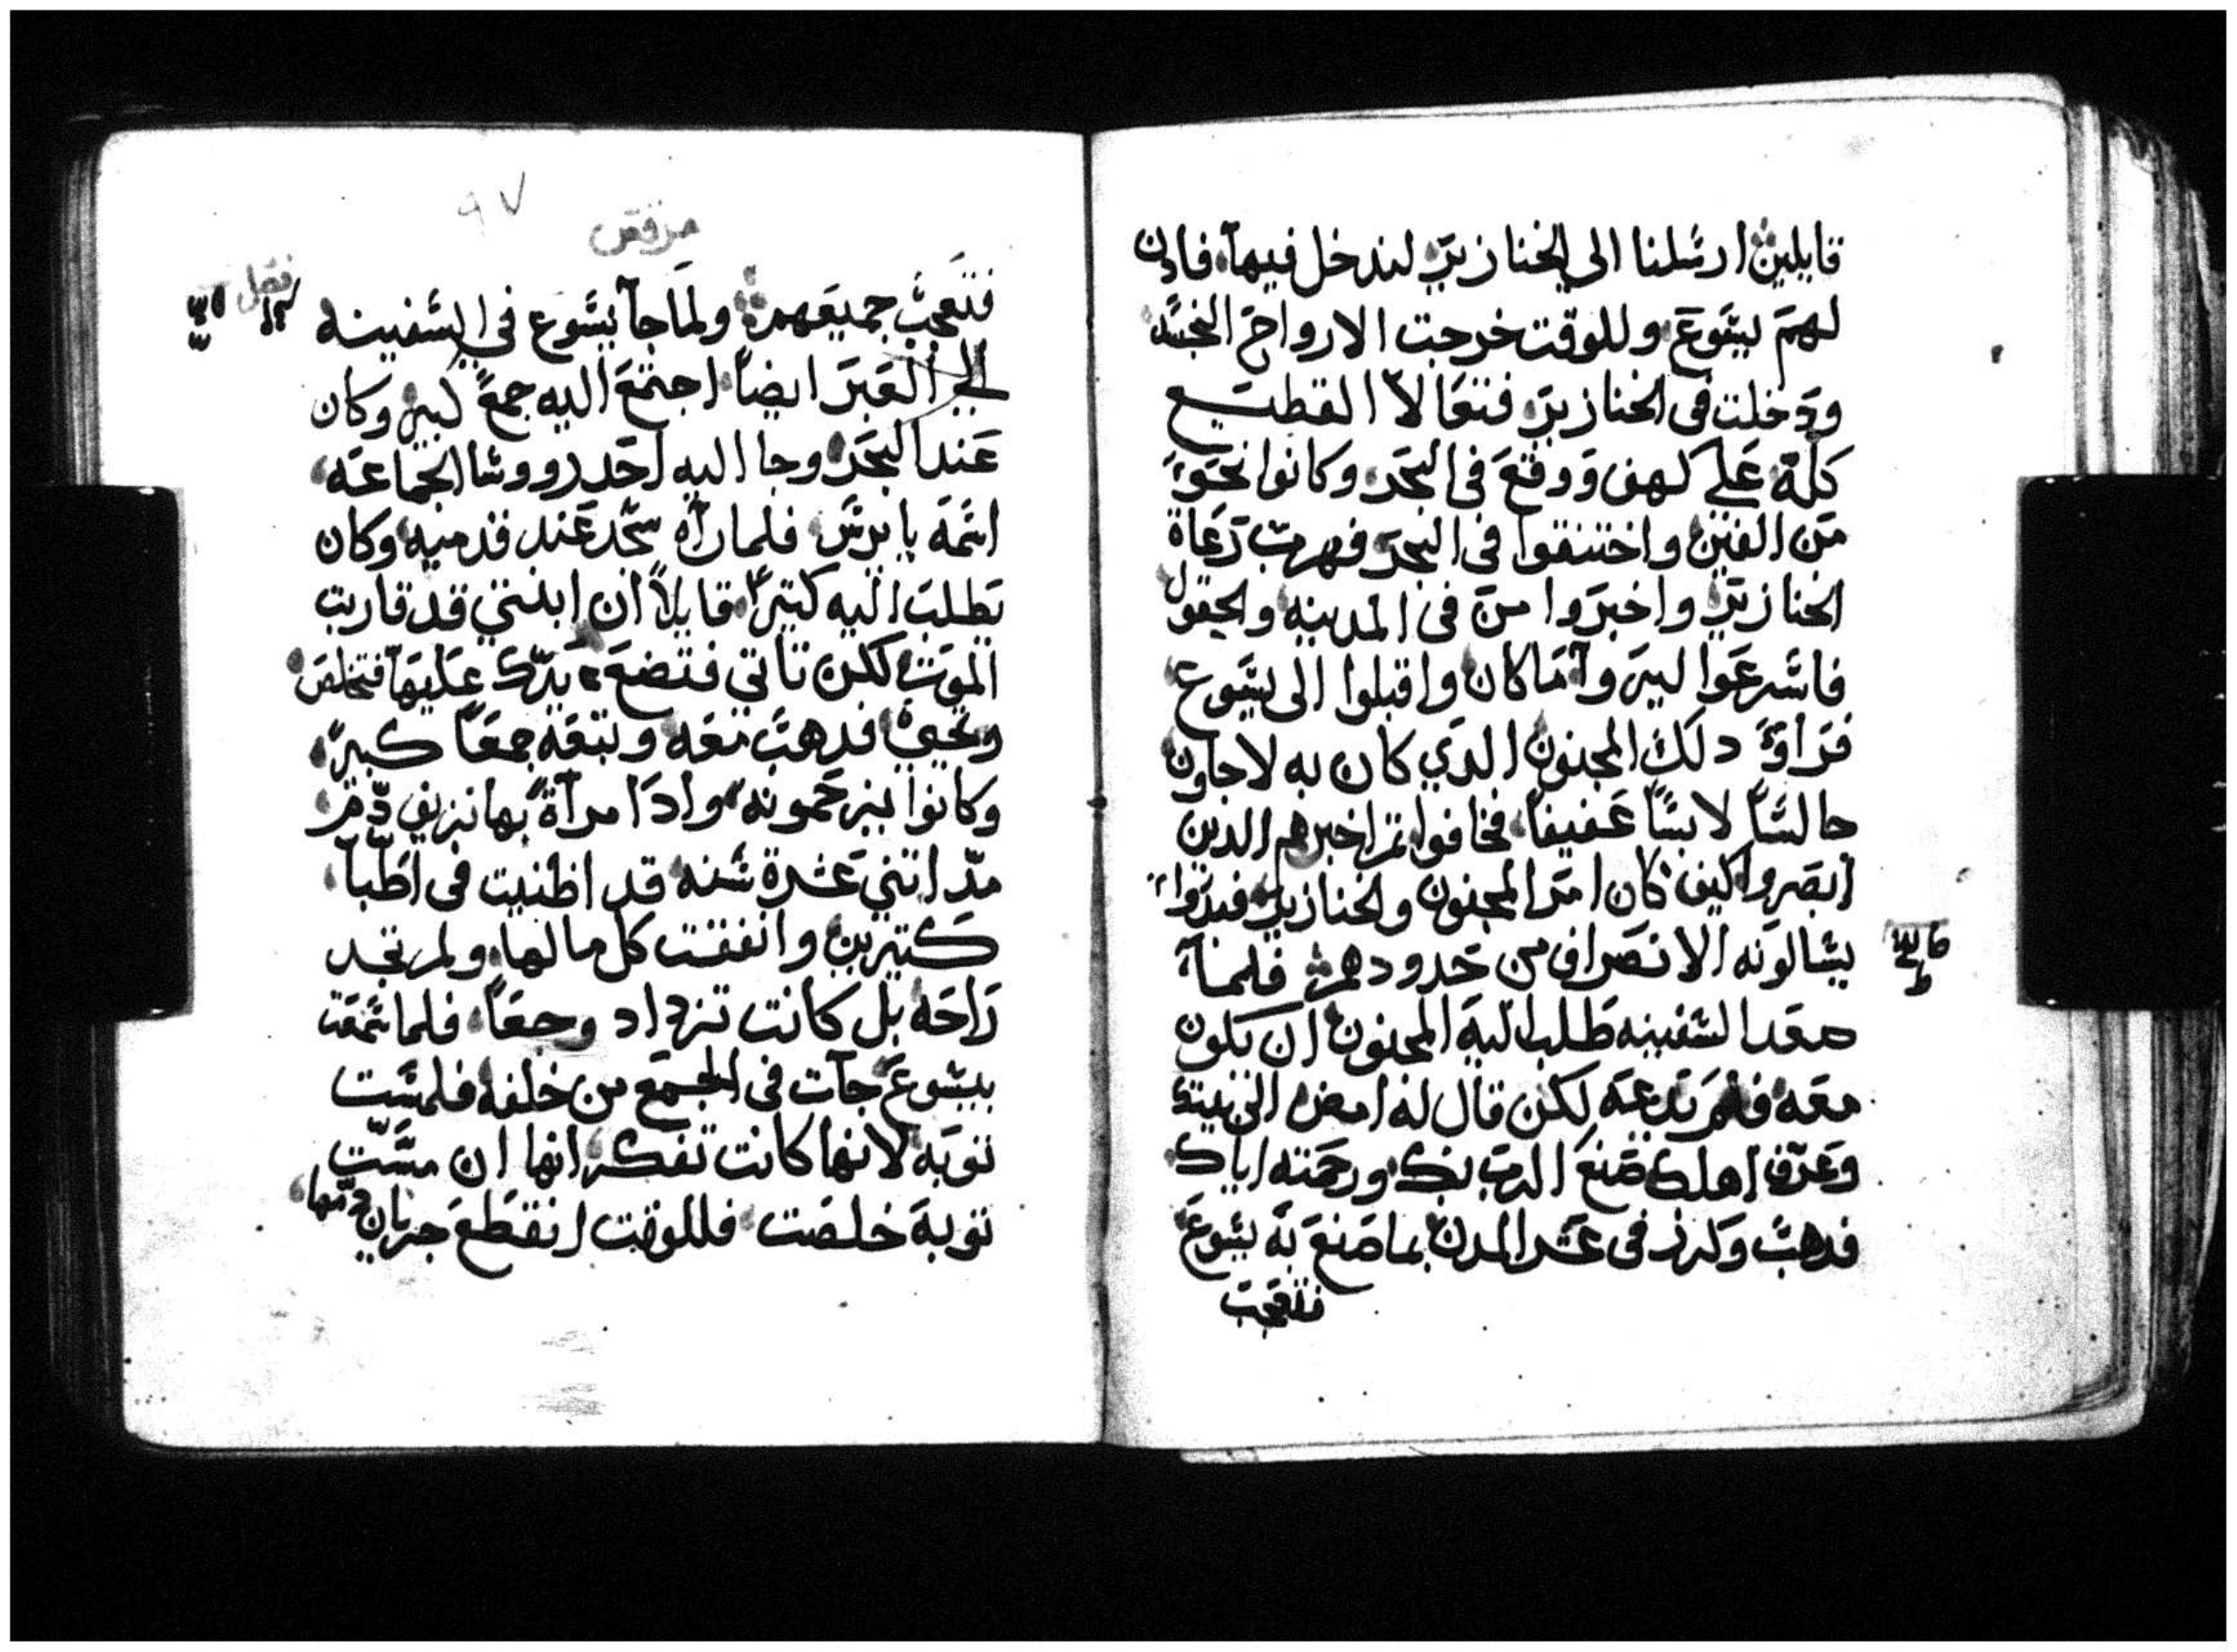 قايلين ارسلنا الى الخنازير لندخل فيها فادن
لهم يسوع وللوقت خرجت الارواح النجسه
ودخلت فى الخنازير فتعالا القطيع
كله على كهف ووقع فى البحر وكانوا نحو
من الفين واختنقوا فى البحر فهربت رعاة
الخنازير واخبروا من فى المدينه والحقول
فاسرعوا ليروا ما كان واقبلوا الى يسوع
فراوا دلك المجنون الدي كان به لاجاون
جالسًا لابسًا عفيفًا فخافوا ثم اخبرهم الذين
ابصروا كيف كان امر المجنون والخنازير فبدوا
يسالونه الانصراف من حدودهم فلما
صعد السفينه طلب اليه المجنون ان يكون
معه فلم يدعه لكن قال له امض الى بيتك
وعرف اهلك صنع الرب بك ورحمته اياك
فدهب وكرز فى عشر المدن بما صنع به يسوع
فتعجب
٩٧
مرقص
فصل
فتعجب جميعهم ولما جآ يسوع في السفينه
الى العبر ايضاً اجتمع اليه جمعً كبير وكان
عند البحر وجا اليه احد رووسا الجماعه
اسمه يايرس فلما رآه سجد عند قدميه وكان
يطلب اليه كتيرًا قايلاً ان ابنتي قد قاربت
الموت لكن تاتي فتضع يدك عليها فتخلص
وتحيى فدهب معه وتبعه جمعًا كبيرً
وكانوا يزحمونه وادا امرآة بها نزيف دم
مد اتنتي عشرة سنه قد اظنيت فى اطبآ
كتيرين وانفقت كل مالها ولم تجد
راحه بل كانت تزداد وجعًا فلما سمعت
بيسوع جآت فى الجمع من خلفه فلمست
توبه لانها كانت تفكر انها ان مست
توبه خلصت فللوقت انقطع جريان دمها